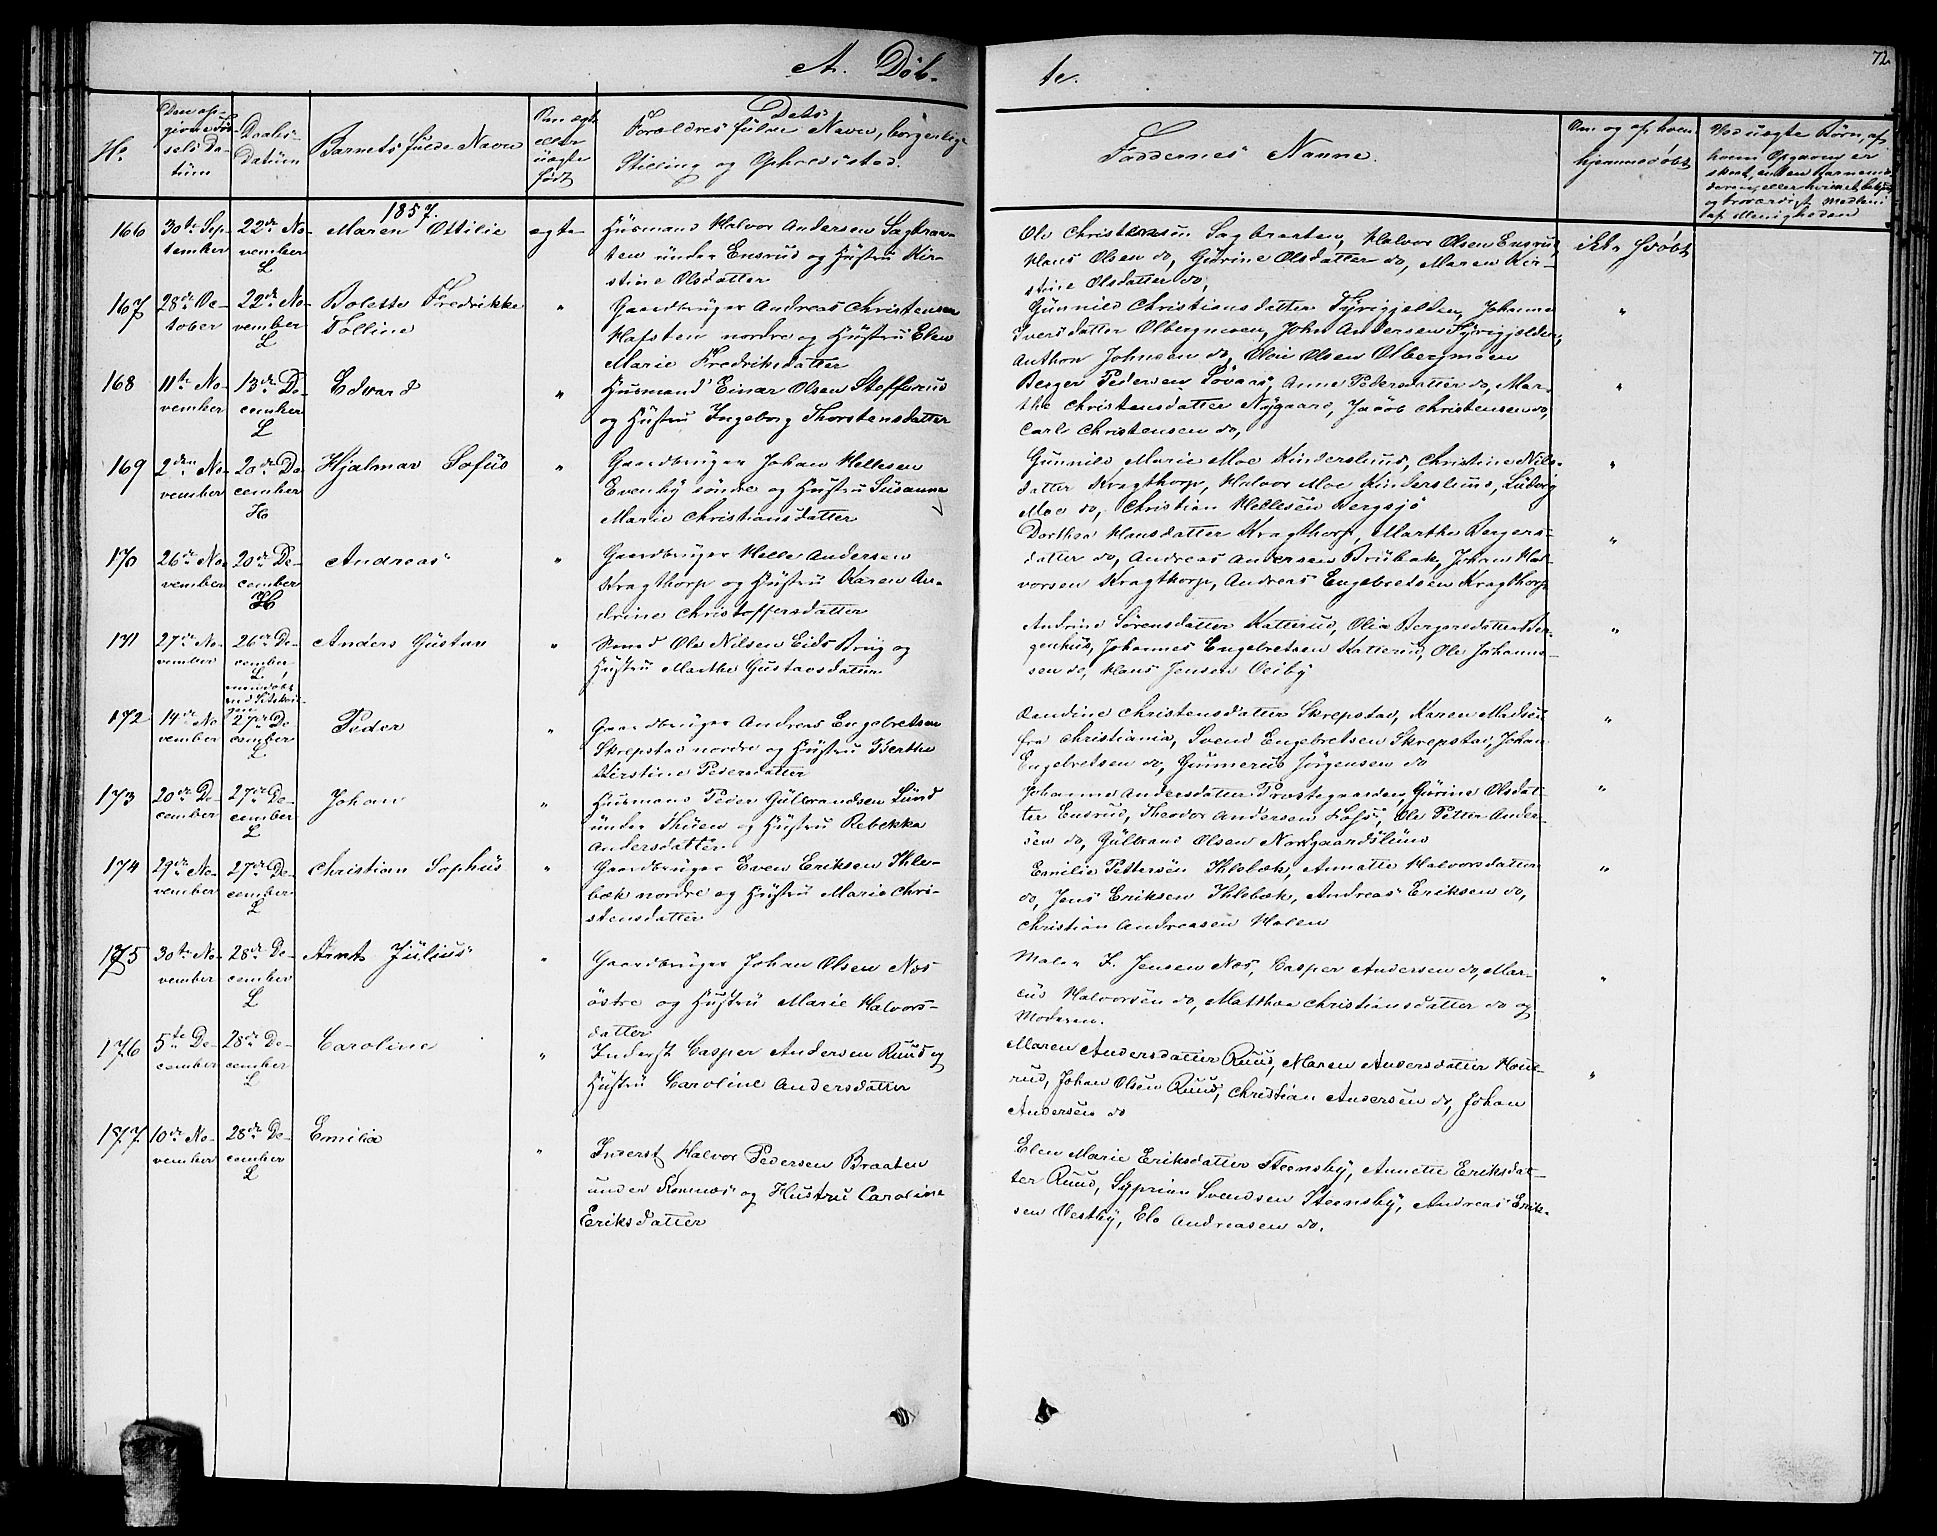 A. Døb-
te.
72.
No
Den op-
givne Fød-
sels Da-
tum
Daabs-
Datum
Barnets fulde Navn
Om ægte
eller
uægte
født
Dets
Forældres fulde Navn, borgerlige
Stilling og Opholdssted.
Faddernes Navne.
Om og af hvem
hjemmedøbt
Ved uægte Børn, af
hvem Opgaven er
skeet, enten Barnemo-
deren, eller
og troværdigt Medlem
af Menigheden
1857.
166
30te Sep-
tember
22de No-
vember
L
Maren Ottilie
ægte
Husmand Halvor Andersen Sagbraa-
ten under Ensrud og Hustru Kir-
stine Olsdatter
Ole Christensen Sagbraaten, Halvor Olsen Ensrud,
Hans Olsen do, Gurine Olsdatter do, Maren Kir-
stine Olsdatter do,
ikke hjdøbt
167
28de Oc-
tober
22de No-
vember
L
Bolette Fredrikke
Tolline
"
Gaardbruger Andreas Christensen
Hafsten nordre og Hustru Elen
Marie Fredriksdatter
Gunnild Christiansdatter Tyrigjelden, Johanne
Iversdatter Olbergmoen, John Andersen Tyrigjelden,
Anthon Johnsen do, Olia Olsen Olbergmoen
"
168
11te No-
vember
13de De-
cember
L
Edvard
"
Husmand Einar Olsen Steffarud
og Hustru Ingeborg Thorstensdatter
Berger Pedersen Løvaas, Anne Pedersdatter do, Mar-
the Christensdatter Nygaard, Jacob Christensen do,
Carl Christensen do,
"
169
2den No-
vember
20de De-
cember
H
Hjalmar Sofus
"
Gaardbruger Johan Hellesen
Evenby søndre og Hustru Susanne
Marie Christiansdatter
Gunnild Marie Moe Kinderslund, Christine Nils-
datter Kragthorp, Halvor Moe Kinderslund, Ludvig
Moe do, Christian Hellesen Bergsjø
"
170
26de No-
vember
20de De-
cember
H
Andreas
"
Gaardbruger Helle Andersen
Kragthorp og Hustru Karen An-
drine Christoffersdatter
Dorthea Hansdatter Kragthorp, Marthe Bergers-
datter do, Andreas Andersen Brubak, Johan Hal-
vorsen Kragthorp, Andreas Engebretsen Kragthorp
"
171
27de No-
vember
26de De-
cember
L
Anders Gustav
"
Smed Ole Nilsen Eids Brug og
Hustru Marthe Gustavsdatter
Andrine Sørensdatter Katterud, Olia Bergersdatter Ber-
genhus, Johannes Engebretsen Katterud, Ole Johanne-
sen do, Hans Jensen Veiby
"
172
14de No-
vember
27de De-
cember
L
Peder
"
Gaardbruger Andreas Engebretsen
Skrepstad nordre og Hustru Berthe
Kirstine Pedersdatter
Randine Christensdatter Skrepstad, Karen Madsen
fra Christiania, Svend Engebretsen Skrepstad, Johan
Engebretsen do, Gunnerus Jørgensen do
"
173
20de De-
cember
27de De-
cember
L
Johan
"
Husmand Peder Gulbrandsen Lund
under Thuen og Hustru Rebekka
Andersdatter
Johanne Andersdatter Præstegaarden, Gurine Olsdat-
ter Ensrud, Theodor Andersen Foss, Ole Petter Ander-
sen do, Gulbrand Olsen Nordgaardslund
"
174
29de No-
vember
27de De-
cember
L
Christian Sophus
"
Gaardbruger Even Eriksen Ihle-
bæk nordre og Hustru Marie Chri-
stensdatter
Emilie Pettersen Ihlebæk, Annette Halvorsdatter
do, Jens Eriksen Ihlebæk, Andreas Eriksen do,
Christian Andreasen Holen
"
175
30te No-
vember
28de De-
cember
L
Arnt Julius
"
Gaardbruger Johan Olsen Næs
østre og Hustru Marie Halvors-
datter
Maler F. Jensen Næs, Casper Andersen do, Mar-
cus Halvorsen do, Matthea Christiansdatter do og
Moderen.
"
176
5te De-
cember
28de De-
cember
L
Caroline
"
Inderst Casper Andersen Ruud og
Hustru Caroline Andersdatter
Maren Andersdatter Ruud, Maren Andersdatter Hau-
rud, Johan Olsen Ruud, Christian Andersen do, Johan
Andersen do
"
177
10de No-
vember
28de De-
cember
L
Emilia
"
Inderst Halvor Pedersen Braaten
under Romnæs og Hustru Caroline
Eriksdatter
Elen Marie Eriksdatter Steensby, Annette Eriksdat-
ter Ruud, Syprian Svendsen Steensby, Andreas Erik-
sen Vestby, Elo Andreasen do.